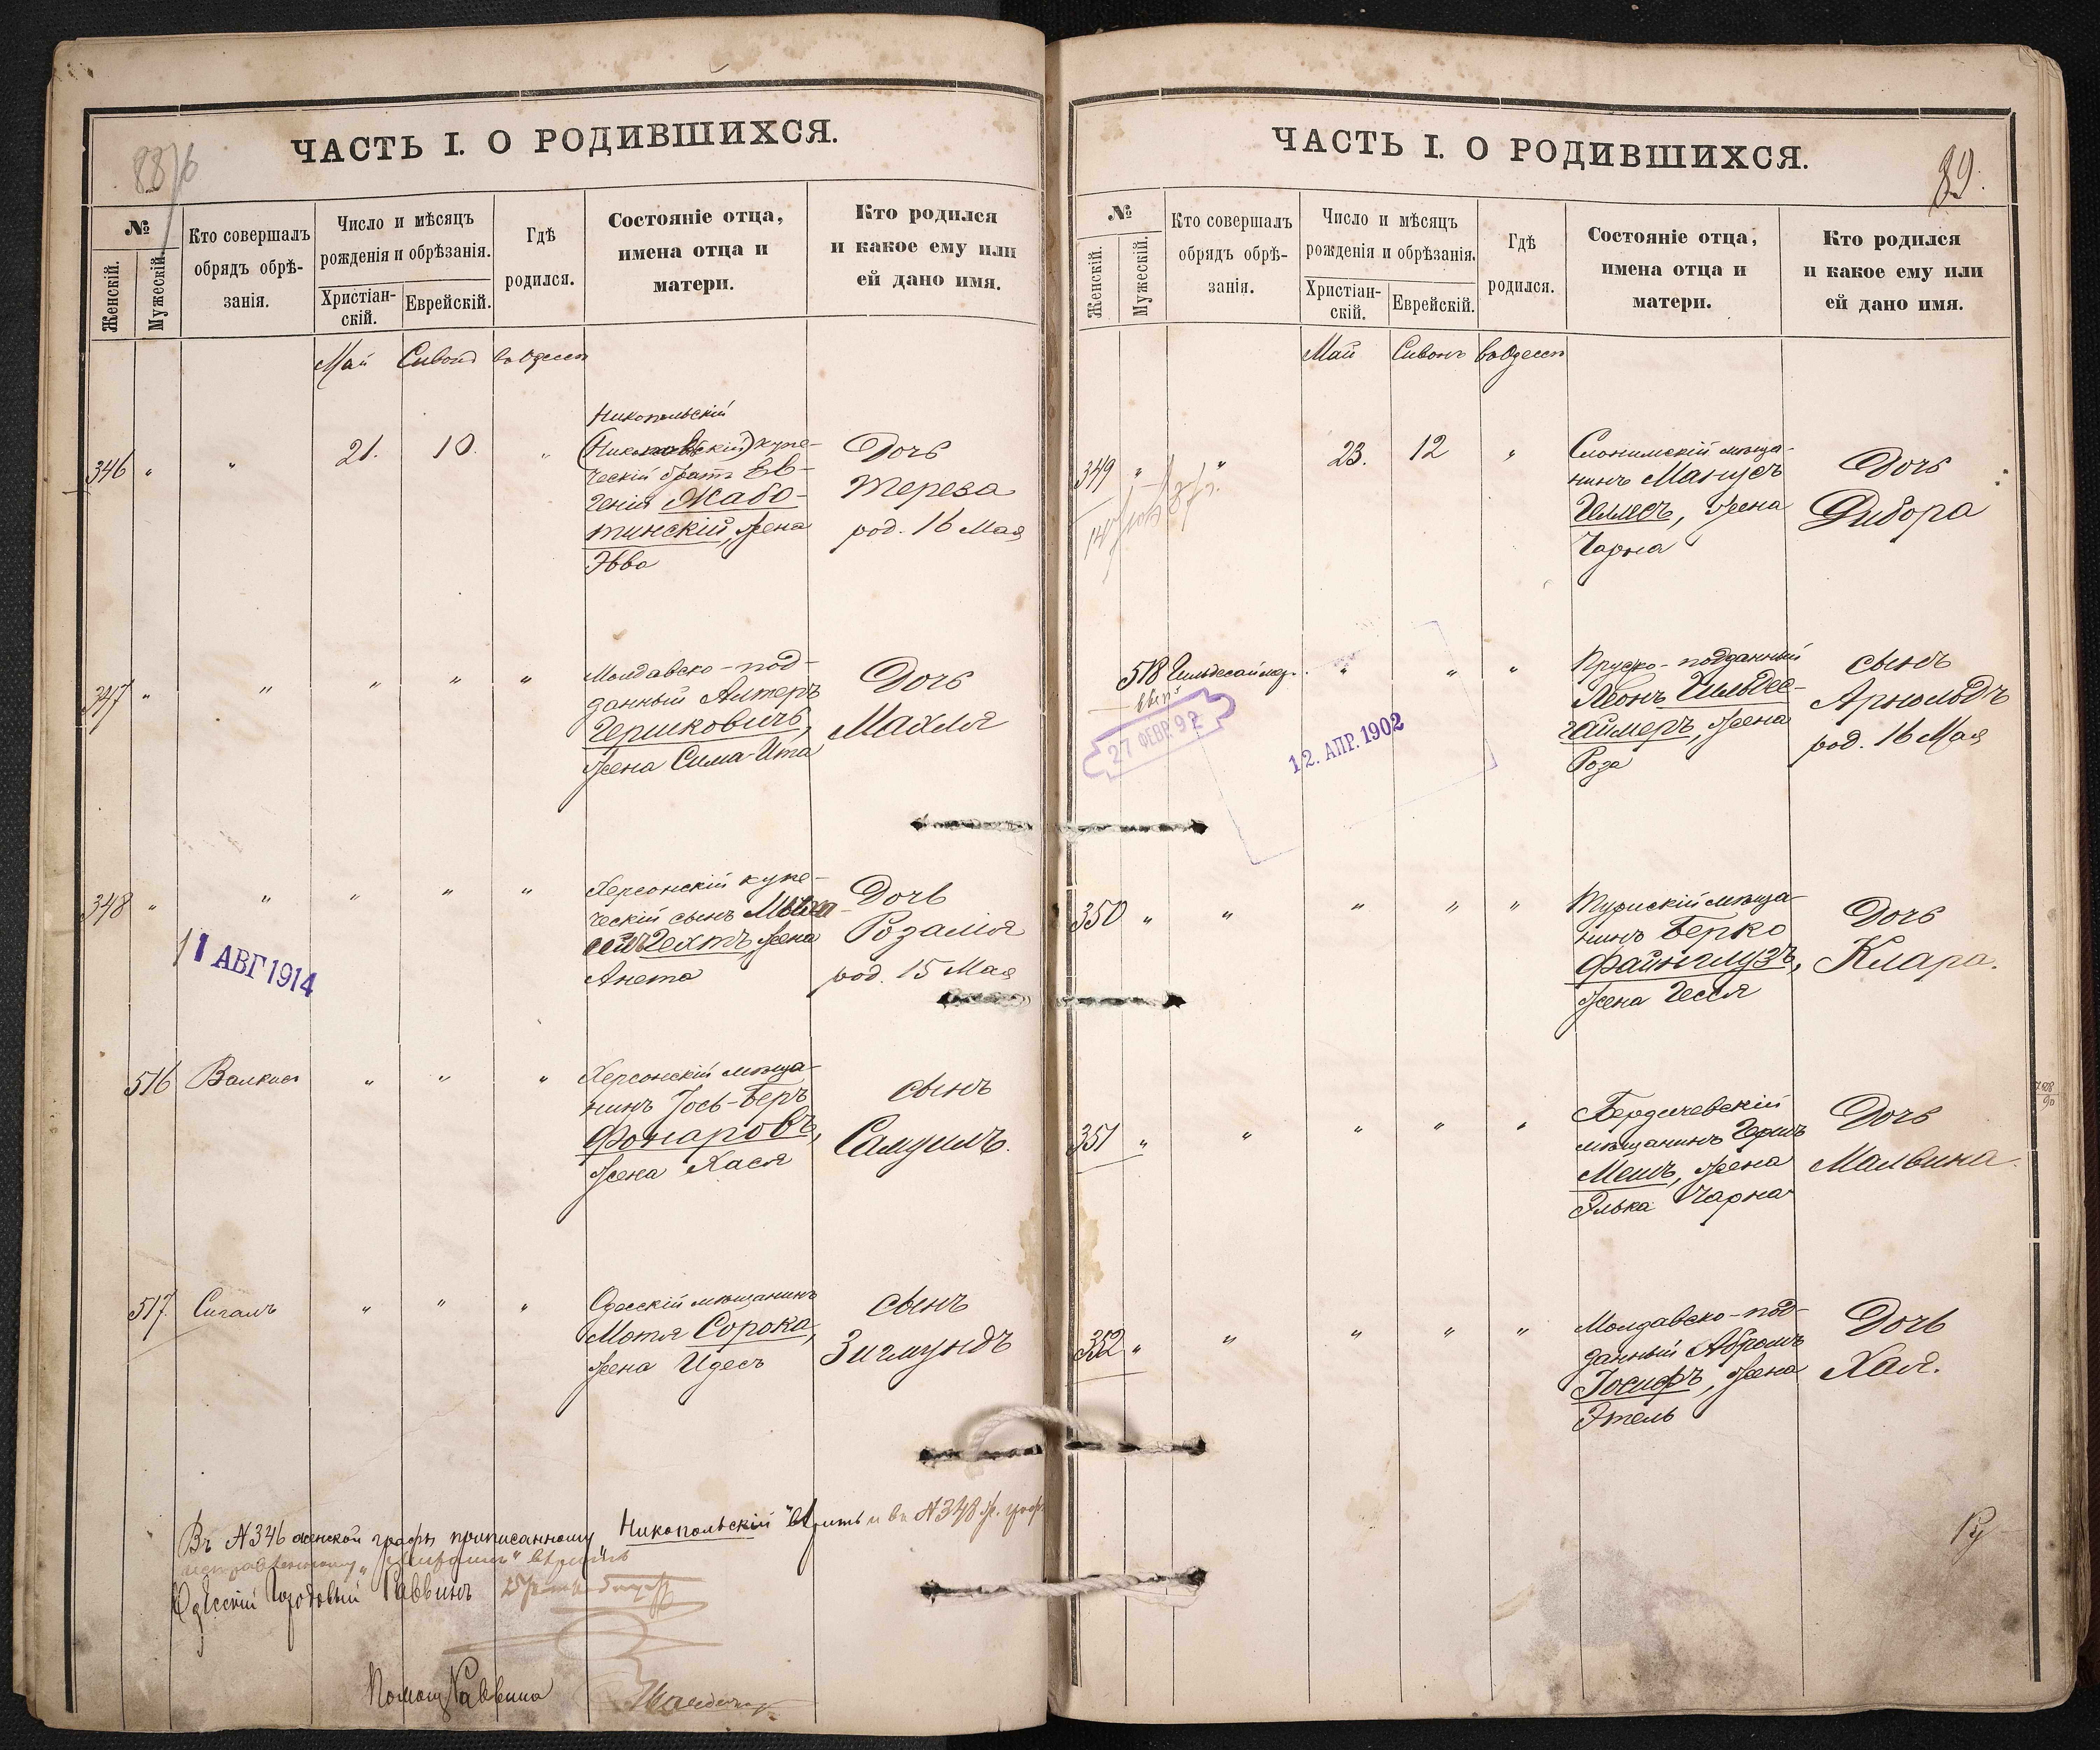 88/6
ЧАСТЬ I. О РОДИВШИХСЯ.
№
Женскій.
Мужескій.
Кто совершалъ
обрядъ обрѣ-
занія.
Число и мѣсяцъ
рожденія и обрѣзанія.
Христіан-
скій.
Еврейскій.
Гдѣ
родился.
Состояніе отца,
имена отца и
матери.
Кто родился
и какое ему или
ей дано имя.
Май Сивонъ въ Одессѣ
346 " " 21. 10 "
Никопольскій
купе-
ческій братъ Ев-
генія Жабо-
тинскій, жена
Эвва
Дочь
Тереза
род. 16 Мая
347 " " " " "
Молдавско-под-
данный Алтеръ
Гершковичъ,
жена Сима-Ита
Дочь
Махля
348 " " " " "
Херсонскій купе-
ческій сынъ
Гехтъ жена
Анета
Дочь
Розалія
род. 15 Мая
11 АВГ 1914
516 Валкис " " "
Херсонскій мѣща-
нинъ Іось-Беръ
Фонаровъ,
жена Хася
сынъ
Самуилъ.
517. Сигалъ " " "
Одесскій мѣщанинъ
Мотя Сорока,
жена Идесъ
сынъ
Зигмундъ
Въ №346 женской графы приписанному "Никопольскій" вѣрить и въ №348 ж. граф.
вѣрить
Одесскій Городовый Раввинъ
Помощ. Раввина
89.
ЧАСТЬ I. О РОДИВШИХСЯ.
№
Женскій.
Мужескій.
Кто совершалъ
обрядъ обрѣ-
занія.
Число и мѣсяцъ
рожденія и обрѣзанія.
Христіан-
скій.
Еврейскій.
Гдѣ
родился.
Состояніе отца,
имена отца и
матери.
Кто родился
и какое ему или
ей дано имя.
Май Сивонъ въ Одессѣ
349 " " 23. 12 "
Слонимскій мѣща-
нинъ Манусъ
Геллесъ, жена
Чарна
Дочь
Дибора
518 Гильдесаймер. " " "
27 ФЕВР. 92
12. АПР. 1902
Прусско-подданный
Леонъ Гильдес-
гаймеръ, жена
Роза
сынъ
Арнольдъ
род. 16 Мая
350 " " " " "
Турискій мѣща-
нинъ Берко
Файнглузъ,
жена Гесся
Дочь
Клара.
351 " " " " "
Бердичевскій
мѣщанинъ Гершъ
Мешъ, жена
Элька Чарна
Дочь
Малвина.
352 " " " " "
Молдавско-под-
данный Абрамъ
Іосифъ, жена
Этель
Дочь
Хая.